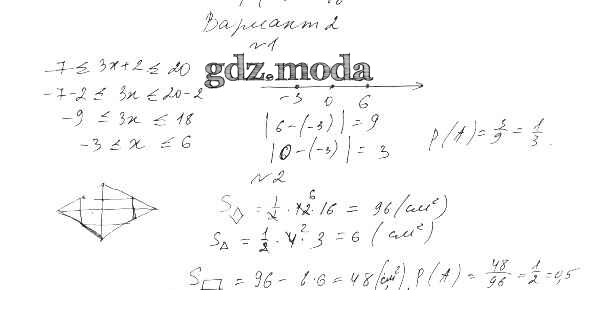 Вариант 2
№1
-7 ≤ 3x+2 ≤ 20
-7-2 ≤ 3x ≤ 20-2
-9 ≤ 3x ≤ 18
-3 ≤ x ≤ 6
gdz.moda
-3 0 6
|6-(-3)| = 9
|0-(-3)| = 3
P(A) = 3/9 = 1/3.
№2
S◇ = 1/2 · 12 6 · 16 = 96 (см²)
S△ = 1/2 · 4 2 · 3 = 6 (см²)
S▭ = 96 - 8·6 = 48 (см²). P(A) = 48/96 = 1/2 = 0,5